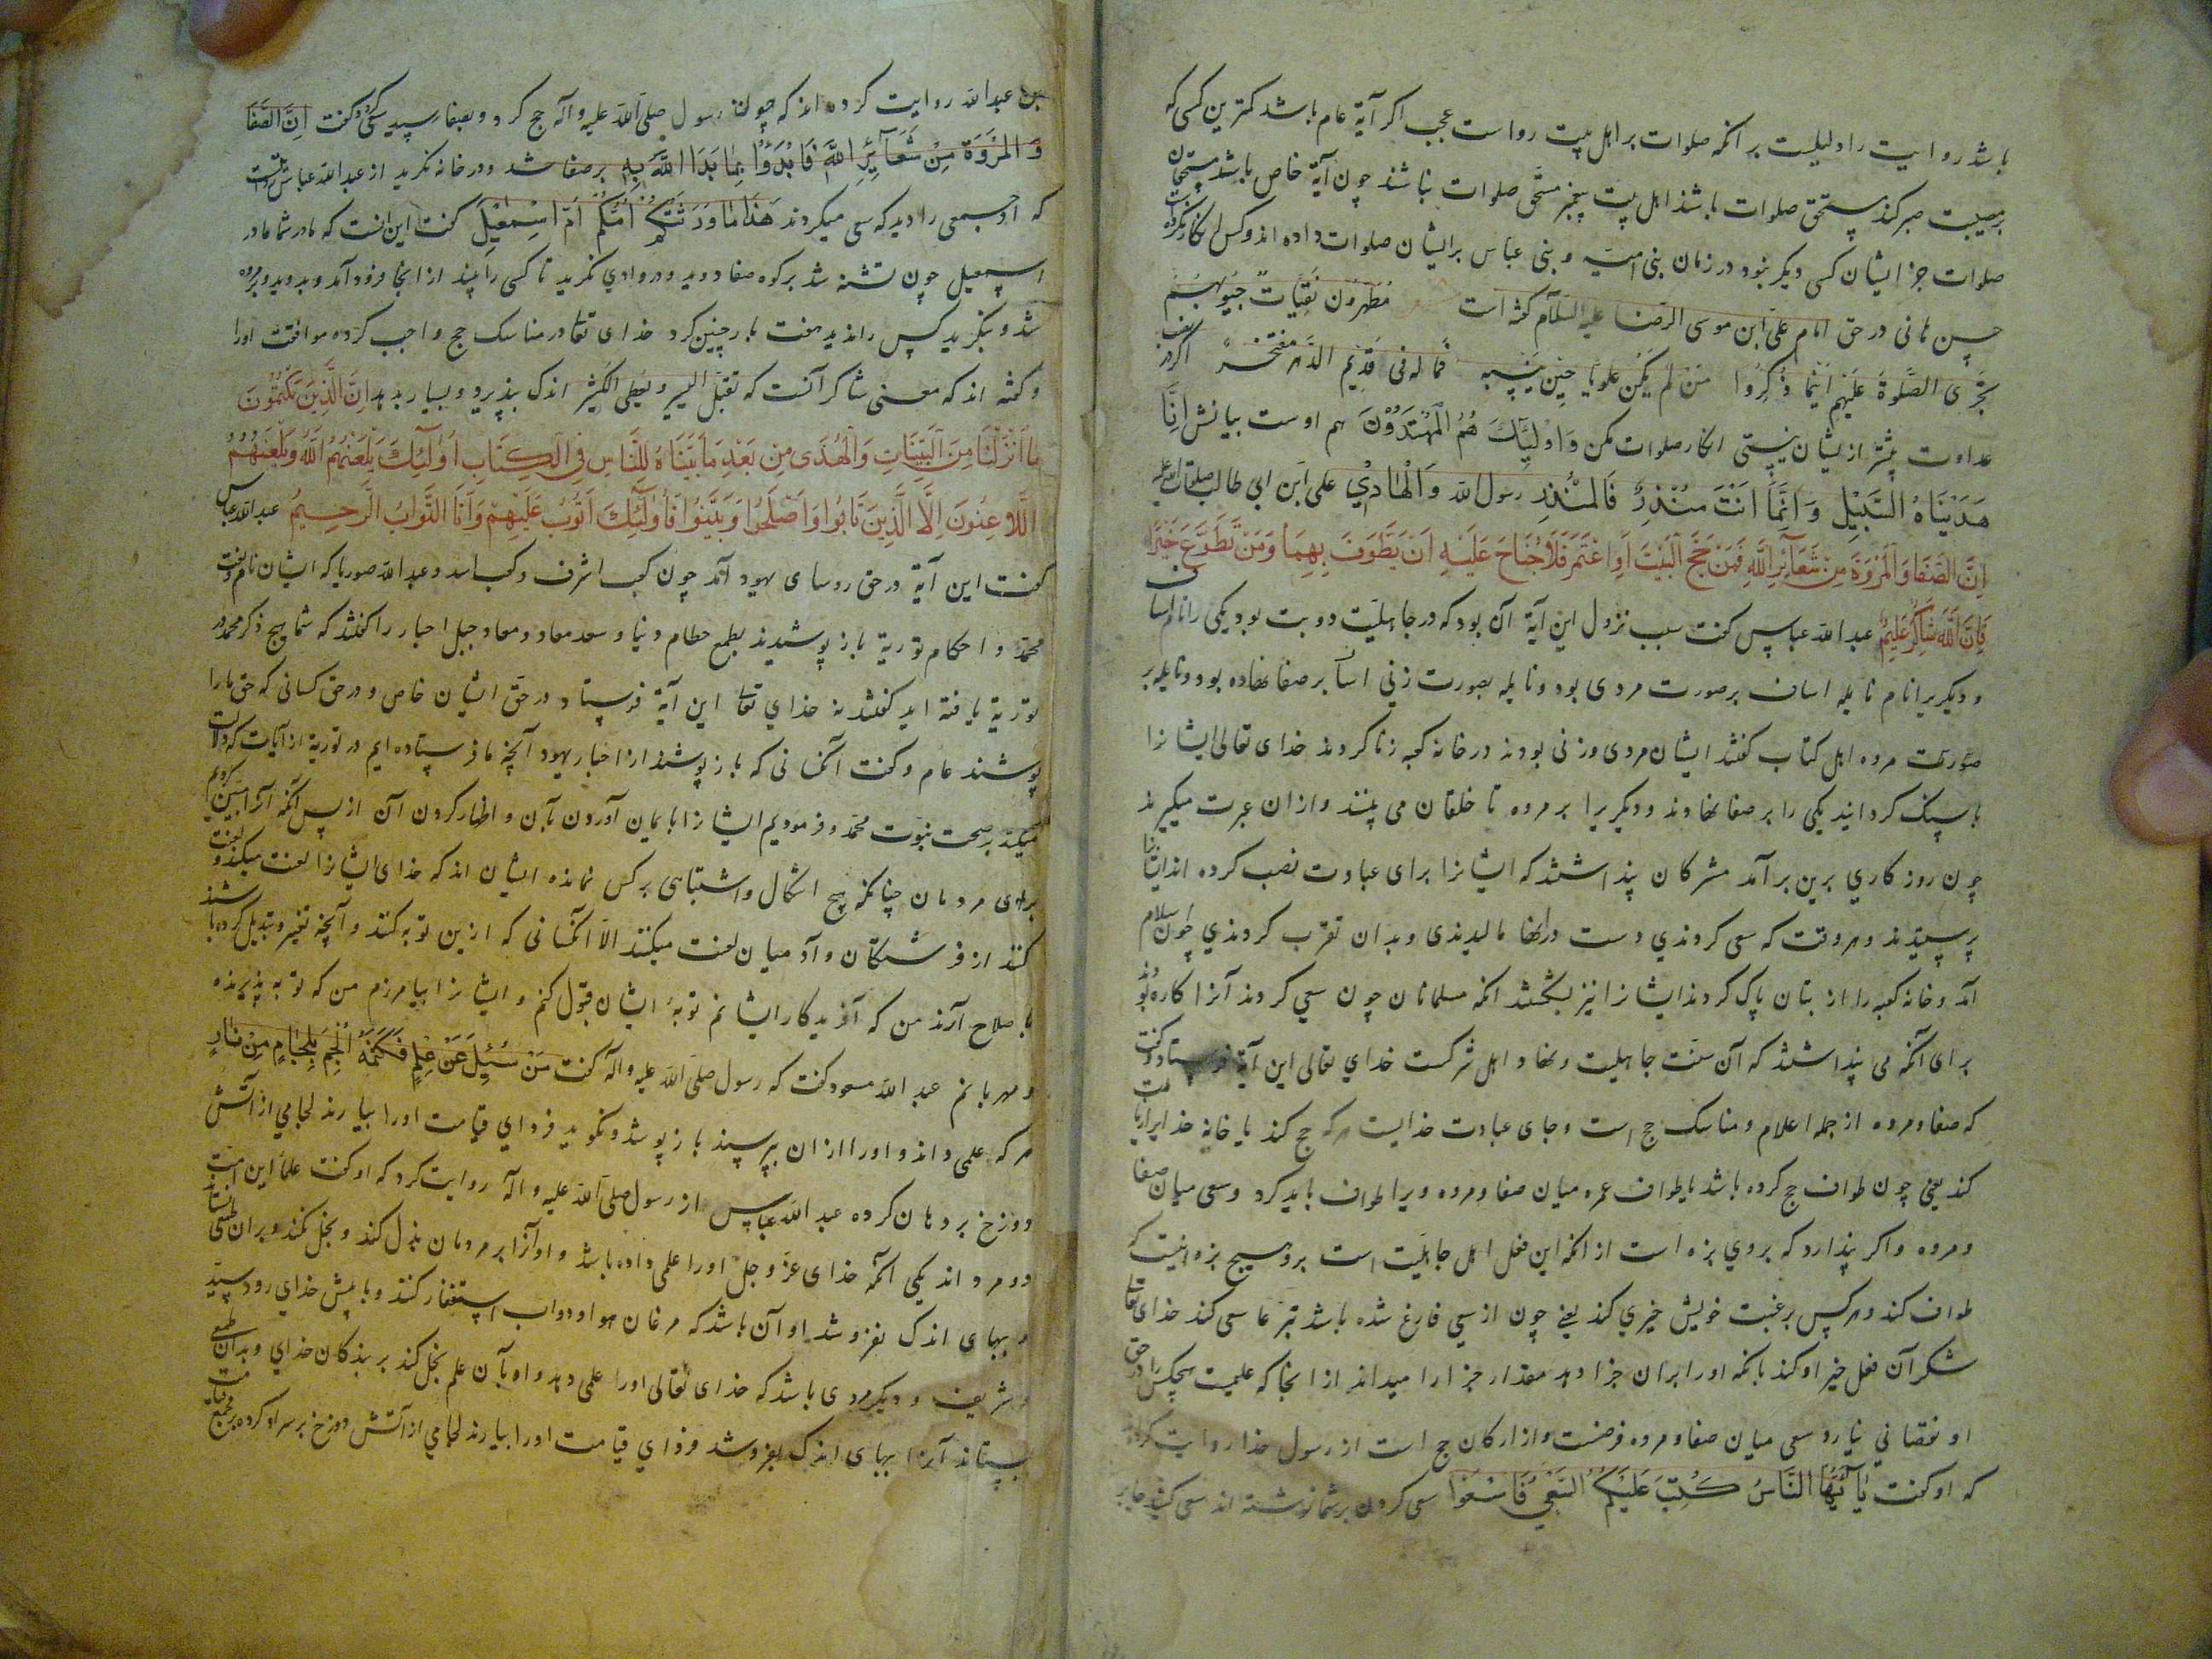 باشد روایت را دلیلیست بر انکه صلوات بر اهل بیت رواست عجب اکر آیة عام باشد کمترین کسی که
بمصیبت صبر کند مستحق صلوات باشد اهل بیت پیغمبر مستحق صلوات نباشند چون آیة خاص باشد مستحقان
صلوات جز ایشان کسی دیکر نبود در زمان بنی امیه و بنی عباس بر ایشان صلوات داده اند و کس انکار نکرده
حسن هانی در حق امام علی ابن موسی الرضا علیه السلام کفته است مُطَهَّرُونَ نَقِیَّاتٌ جُیُوبُهُمُ
تَجْرِی الصَّلٰوةُ عَلَیْهِمْ اَیْنَمَا ذُکِرُوا مَنْ لَمْ یَکُنْ عَلَوِیًّا حِینَ تَنْسِبُهُ فَمَا لَهُ فِی قَدِیمِ الدَّهْرِ مُفْتَخَرٌ اکر در
عداوت بیشتر ازیشان نیستی انکار صلوات مکن وَ اُولٰئِکَ هُمُ الْمُهْتَدُونَ هم اوست بیانش اِنَّا
هَدَیْنَاهُ السَّبِیْلَ وَ اِنَّمَا اَنْتَ مُنْذِرٌ فَالْمُنْذِر رسول الله وَ الْهَادِیْ علی ابن ابی طالب صلوات الله علیه
اِنَّ الصَّفَا وَ الْمَرْوَةَ مِنْ شَعَآئِرِ اللّٰهِ فَمَنْ حَجَّ الْبَیْتَ اَوِ اعْتَمَرَ فَلَا جُنَاحَ عَلَیْهِ اَنْ یَطَّوَّفَ بِهِمَا وَ مَنْ تَطَوَّعَ خَیْرًا
فَاِنَّ اللّٰهَ شَاکِرٌ عَلِیْمٌ عبد الله عباس کفت سبب نزول این آیة آن بود که در جاهلیّت دو بت بود یکی را نام اساف
و دیکریرا نام نایله اساف بر صورت مردی بود و نایله بصورت زنی اساف بر صفا نهاده بود و نایله بر
مروه اهل کتاب کفتند ایشان مردی و زنی بودند در خانه کعبه زنا کردند خدای تعالی ایشانرا
با سنک کردانید یکی را بر صفا نهادند و دیکریرا بر مروه تا خلقان می بینند و ازان عبرت میکیرند
چون روزکاری برین برآمد مشرکان پنداشتند که ایشانرا برای عبادت نصب کرده اند ایشانرا
پرستیدند و هر وقت که سعی کردندی دست درانها مالیدندی و بدان تقرب کردندی چون اسلام
آمد و خانه کعبه را از بتان پاک کردند ایشانرا نیز بشکستند انکه مسلمانان چون سعی کردند آنرا کاره بودند
برای آنکه می پنداشتند که آن سنّت جاهلیت و اهل شرکست خدای تعالی این آیة فرستاد و کفت
که صفا و مروه از جمله اعلام و مناسک حج است و جای عبادت خدایست هر که حج کند یا خانه خدایرا زیارت
کند یعنی چون طواف حج کرده باشد یا طواف عمره میان صفا و مروه ویرا طواف باید کرد و سعی میان صفا
و مروه و اکر پندارد که بر وی بزه است از انکه این فعل اهل جاهلیّت است برو هیچ بزه نیست که
طواف کند و هرکس برغبت خویش خیری کند یعنی چون از سعی فارغ شده باشد تبرعا سعی کند خدای تعالی
شکر آن فعل خیر او کند بانکه اورا بران جزا دهد مقدار جزا را میداند از انجا که علمیت هیچکس را در حق
او نقصانی نیارد و سعی میان صفا و مروه فرضست و از ارکان حج است از رسول خدا روایت کرده
که او کفت یَا اَیُّهَا النَّاسُ کُتِبَ عَلَیْکُمُ السَّعْیُ فَاسْعَوْا سعی کردن بر شما نوشته اند سعی کنید جابر
بن عبد الله روایت کرده اند که چون رسول صلی الله علیه و آله حج کرد و بصفا رسید کفت اِنَّ الصَّفَا
وَ الْمَرْوَةَ مِنْ شَعَآئِرِ اللّٰهِ فَابْدَؤُا بِمَا بَدَا اللّٰهُ بِهِ بر صفا شد و در خانه نکرید از عبد الله عباس روایتست
که او جمعی را دید که سعی میکردند هٰذَا مَا وَرَثَتْکُمْ اُمُّکُمْ اُمّ اِسْمٰعِیْلَ کفت این انست که مادر شما مادر
اسمعیل چون تشنه شد بر کوه صفا دوید و در وادی نکرید تا کسی را بیند از انجا فرود آمد و بدوید و بر مروه
شد و بنکرید کس را ندید هفت بار چنین کرد خدای تعالی در مناسک حج واجب کرده موافقت اورا
و کفته اند که معنی شاکر آنست که تقبل الیسیر و یعطی الکثیر اندک بپذیرد و بسیار بدهد اِنَّ الَّذِیْنَ یَکْتُمُوْنَ
مَا اَنْزَلْنَا مِنَ الْبَیِّنَاتِ وَ الْهُدٰی مِنْ بَعْدِ مَا بَیَّنَّاهُ لِلنَّاسِ فِی الْکِتَابِ اُولٰئِکَ یَلْعَنُهُمُ اللّٰهُ وَ یَلْعَنُهُمُ
اللَّاعِنُوْنَ اِلَّا الَّذِیْنَ تَابُوا وَ اَصْلَحُوا وَ بَیَّنُوا فَاُولٰئِکَ اَتُوْبُ عَلَیْهِمْ وَ اَنَا التَّوَّابُ الرَّحِیْمُ عبد الله عباس
کفت این آیة در حق روسای یهود آمد چون کعب اشرف و کعب اسد و عبد الله صوریا که ایشان نام و نعت
محمد و احکام توریة باز پوشیدند بطمع حطام دنیا و سعد معاد و معاذ جبل احبار را کفتند که شما هیچ ذکر محمد در
توریة یافته اید کفتند نه خدای تعالی این آیة فرستاد در حق ایشان خاص و در حق کسانی که حق ما را
پوشند عام و کفت آنکسانی که باز پوشند از احبار یهود آنچه ما فرستاده ایم در توریة از آیات که دلالت
میکند بر صحت نبوّت محمد و فرمودیم ایشانرا بایمان آوردن بآن و اظهار کردن آن از پس آنکه آنرا مبیّن کردیم
برای مردمان چنانکه هیچ اشکال و اشتباهی بر کس نمانده ایشان اند که خدای ایشانرا لعنت میکند و لعنت
کنند از فرشتکان و آدمیان لعنت میکنند الا آنکسانی که ازین توبه کنند و آنچه تغیر و تبدیل کرده باشند
با صلاح آرند من که آفریدکار ایشانم توبهٔ ایشان قبول کنم و ایشانرا بیامرزم من که توبه پذیرنده
و مهربانم عبد الله مسعود کفت که رسول صلی الله علیه و آله کفت مَنْ سُئِلَ عَنْ عِلْمٍ فَکَتَمَهُ اُلْجِمَ بِلِجَامٍ مِنْ نَارٍ
هر که علمی داند و اورا ازان بپرسند باز پوشد و نکوید فردای قیامت اورا بیارند لجامی از آتش
دوزخ بر دهان کرده عبد الله عباس از رسول صلی الله علیه و آله روایت کرد که او کفت علماء این امّت
دو مرد اند یکی آنکه خدای عزّ و جل اورا علمی داده باشد و او آنرا بر مردمان بذل کند و بخل نکند و بران طمعی نستاند
و ببهای اندک نفروشد او آن باشد که مرغان هوا و دواب استغفار کنند و با پیش خدای رود سیّد
و شریف و دیکر مردی باشد که خدای تعالی اورا علمی دهد و او بآن علم بخل کند بر بندکان خدای و بدان طمعی
بستاند آنرا ببهای اندک بفروشد فردای قیامت اورا بیارند لجامی از آتش دوزخ بر سر او کرده بر مجمع